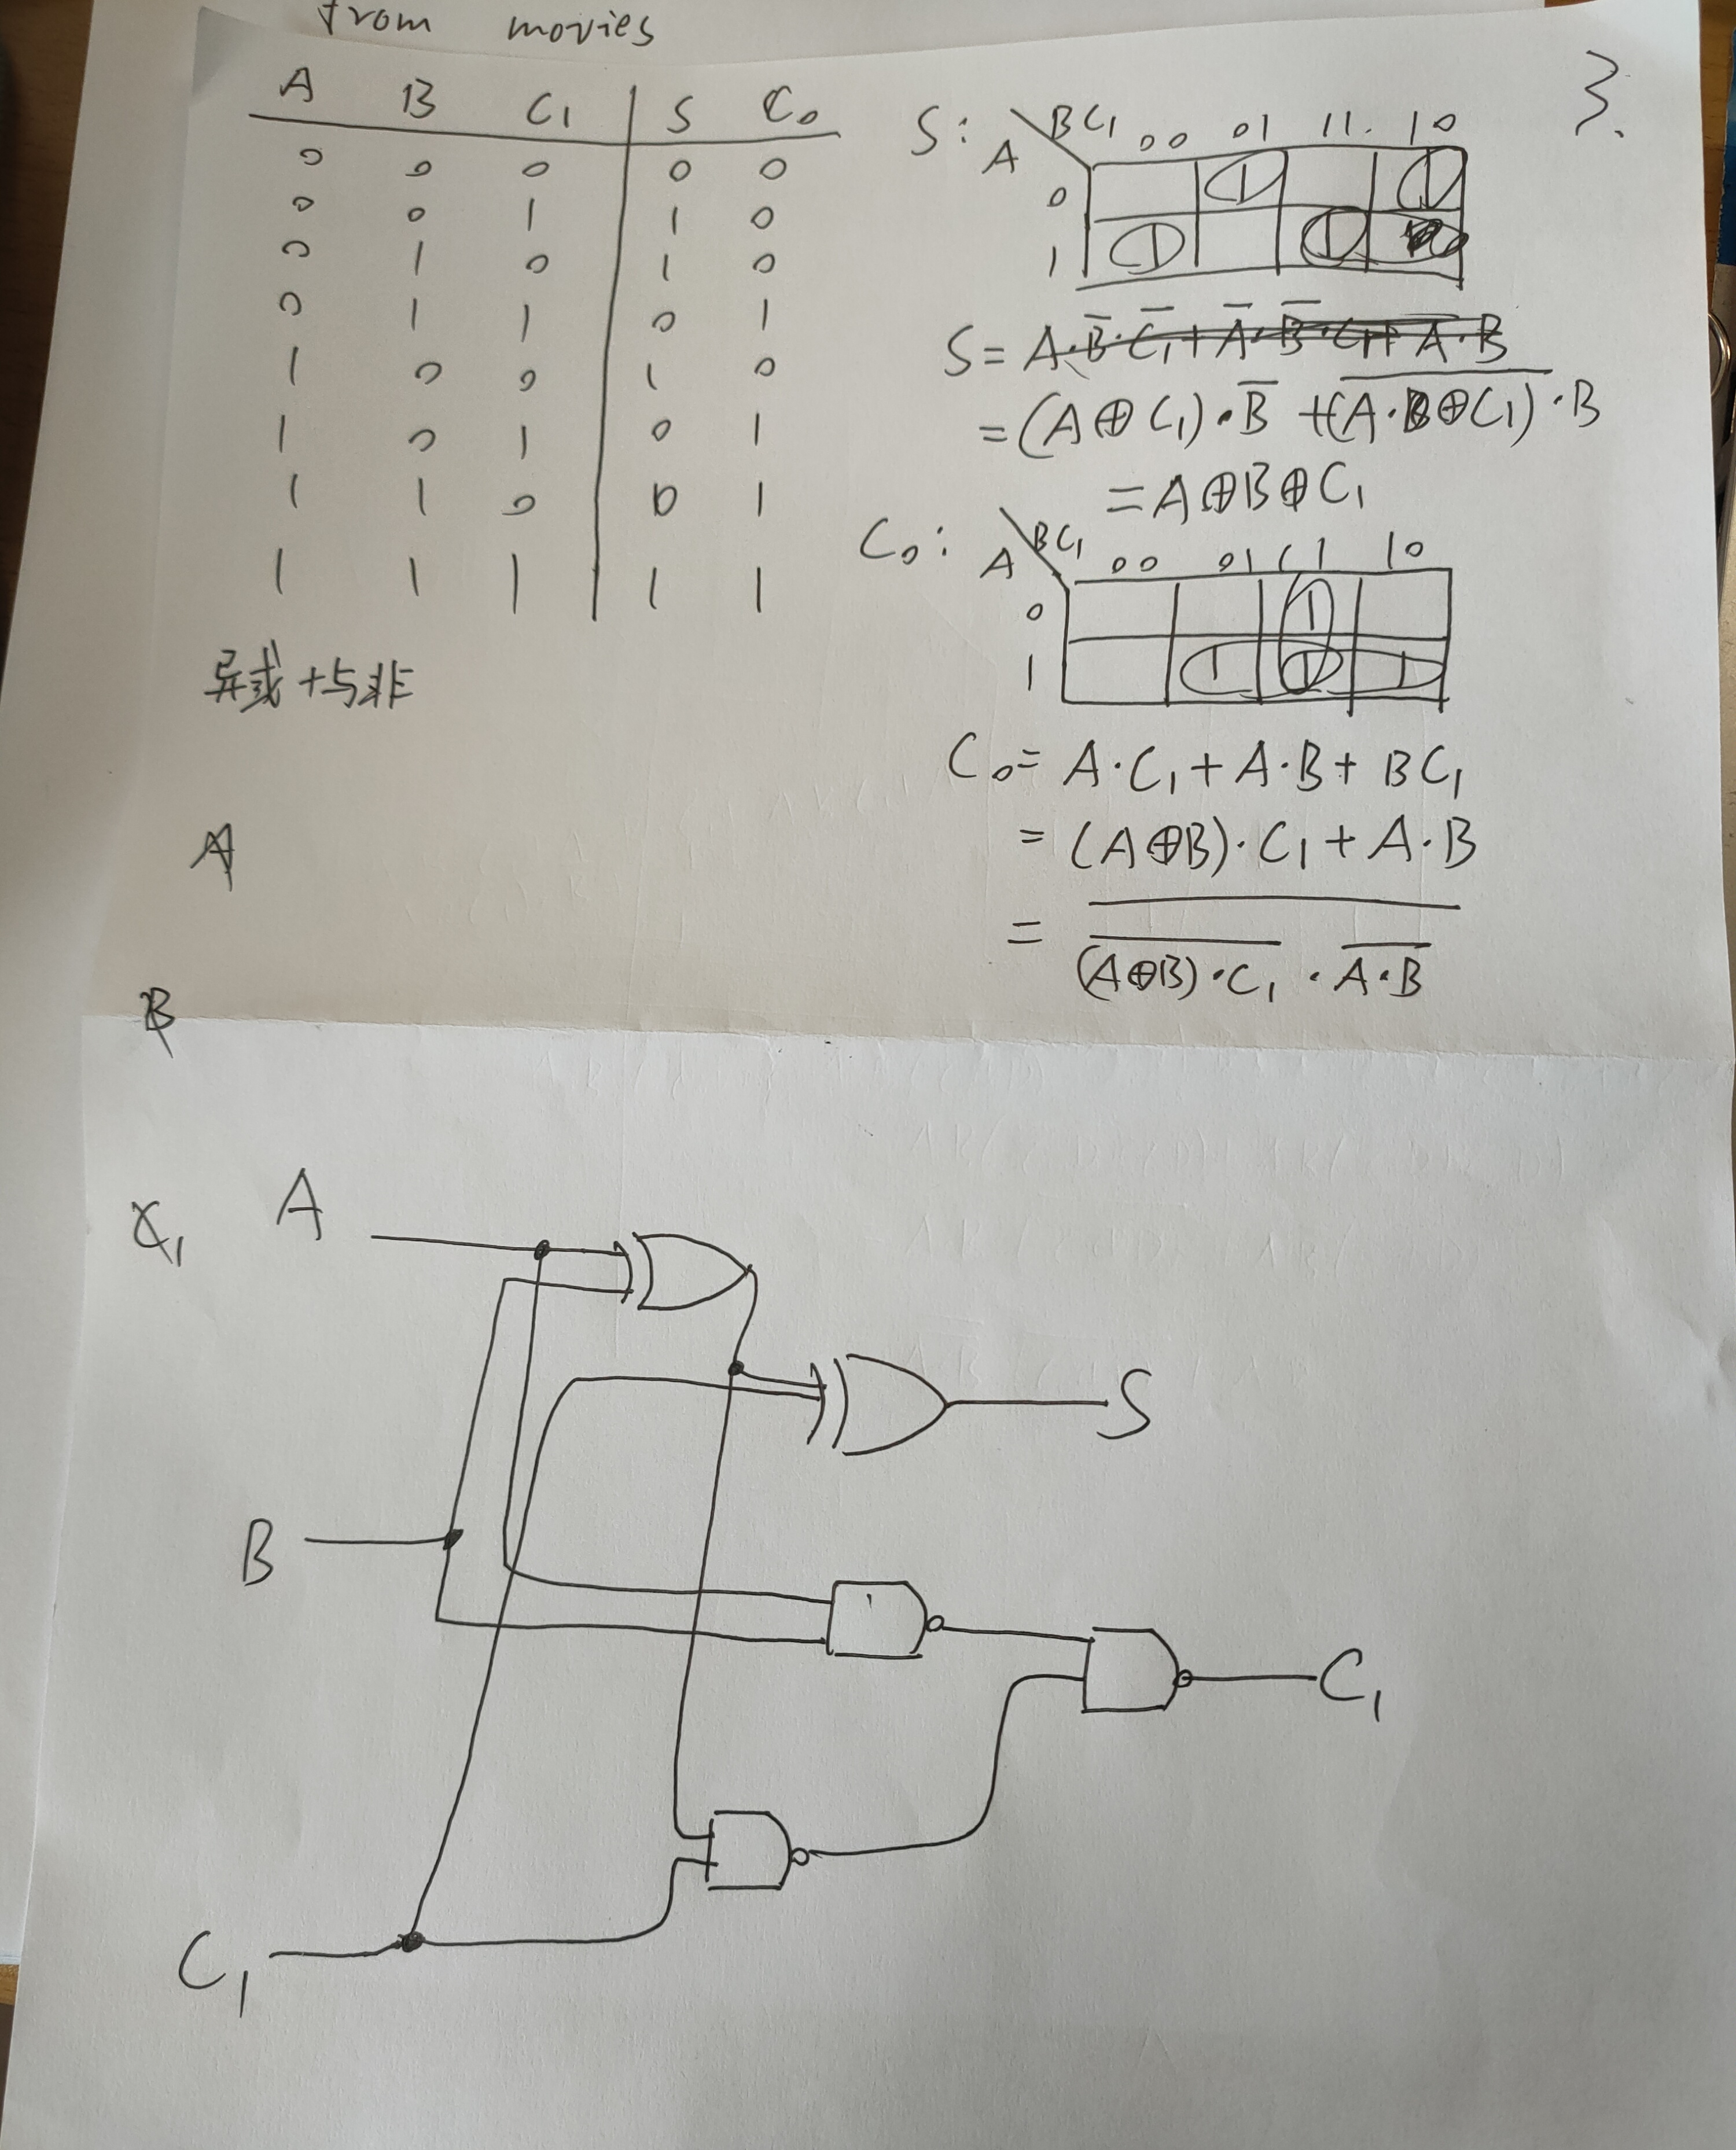 from movies
A B C₁ S C₀
0 0 0 0 0
0 0 1 1 0
0 1 0 1 0
0 1 1 0 1
1 0 0 1 0
1 0 1 0 1
1 1 0 0 1
1 1 1 1 1
异或+与非
A
B
C₁
3.
S: A BC₁ 00 01 11. 10
0 1 1
1 1 1
S= A·B̅·C̅₁+A̅·B̅·C₁+A̅·B
=(A⊕C₁)·B̅ +(\overline{A·⊕C₁)}·B
=A⊕B⊕C₁
C₀: A BC₁ 00 01 11 10
0 1
1 1 1 1
C₀= A·C₁+A·B+BC₁
= (A⊕B)·C₁+A·B
= \overline{\overline{(A⊕B)·C₁}·\overline{A·B}}
A
S
B
C₁
C₁